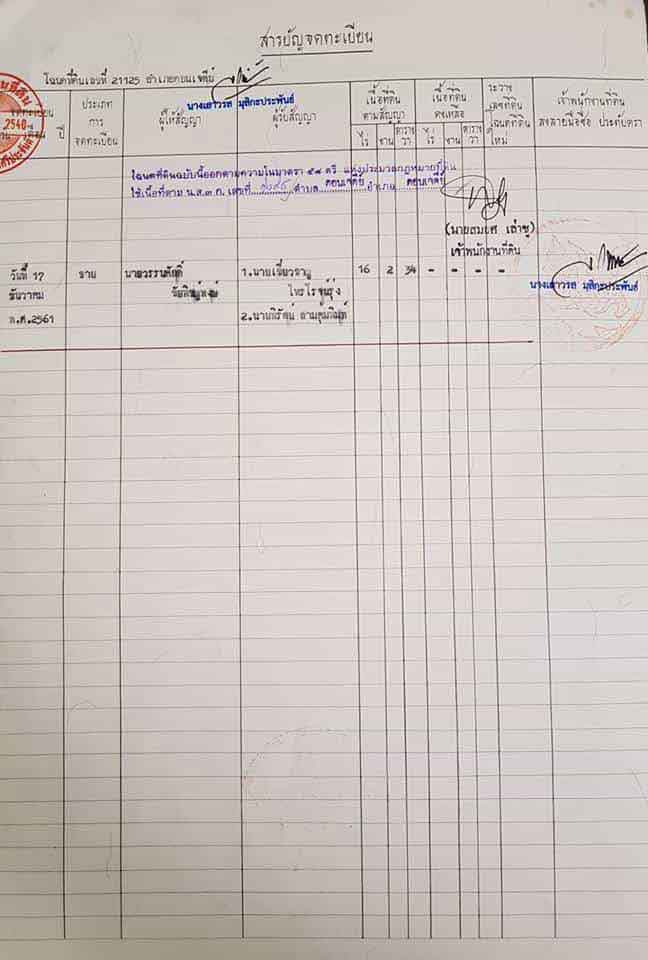 สารบัญจดทะเบียน
โฉนดที่ดินเลขที่ 21125 อำเภอดอนเจดีย์
นางเยาวรส มุสิกะประพันธ์
2540
จดทะเบียน
ปี
ประเภท
การ
จดทะเบียน
ผู้ให้สัญญา
ผู้รับสัญญา
เนื้อที่ดิน
ตามสัญญา
ไร่ งาน ตาราง
วา
เนื้อที่ดิน
คงเหลือ
ไร่ งาน ตาราง
วา
ระวาง
เลขที่ดิน
โฉนดที่ดิน
ใหม่
เจ้าพนักงานที่ดิน
ลงลายมือชื่อ ประทับตรา
โฉนดที่ดินฉบับนี้ออกตามความในมาตรา ๕๘ ตรี แห่งประมวลกฎหมายที่ดิน
ใช้เนื้อที่ตาม น.ส.๓ ก. เลขที่ ตำบล ดอนเจดีย์ อำเภอ ดอนเจดีย์
เจ้าพนักงานที่ดิน
วันที่ 17 ขาย นายวรรนศักดิ์ 1.นายเชี่ยวชาญ 16 2 34 - - - -
ธันวาคม ไพรโรจน์รุ่ง
พ.ศ.2561 2.นาย
นางเยาวรส มุสิกะประพันธ์